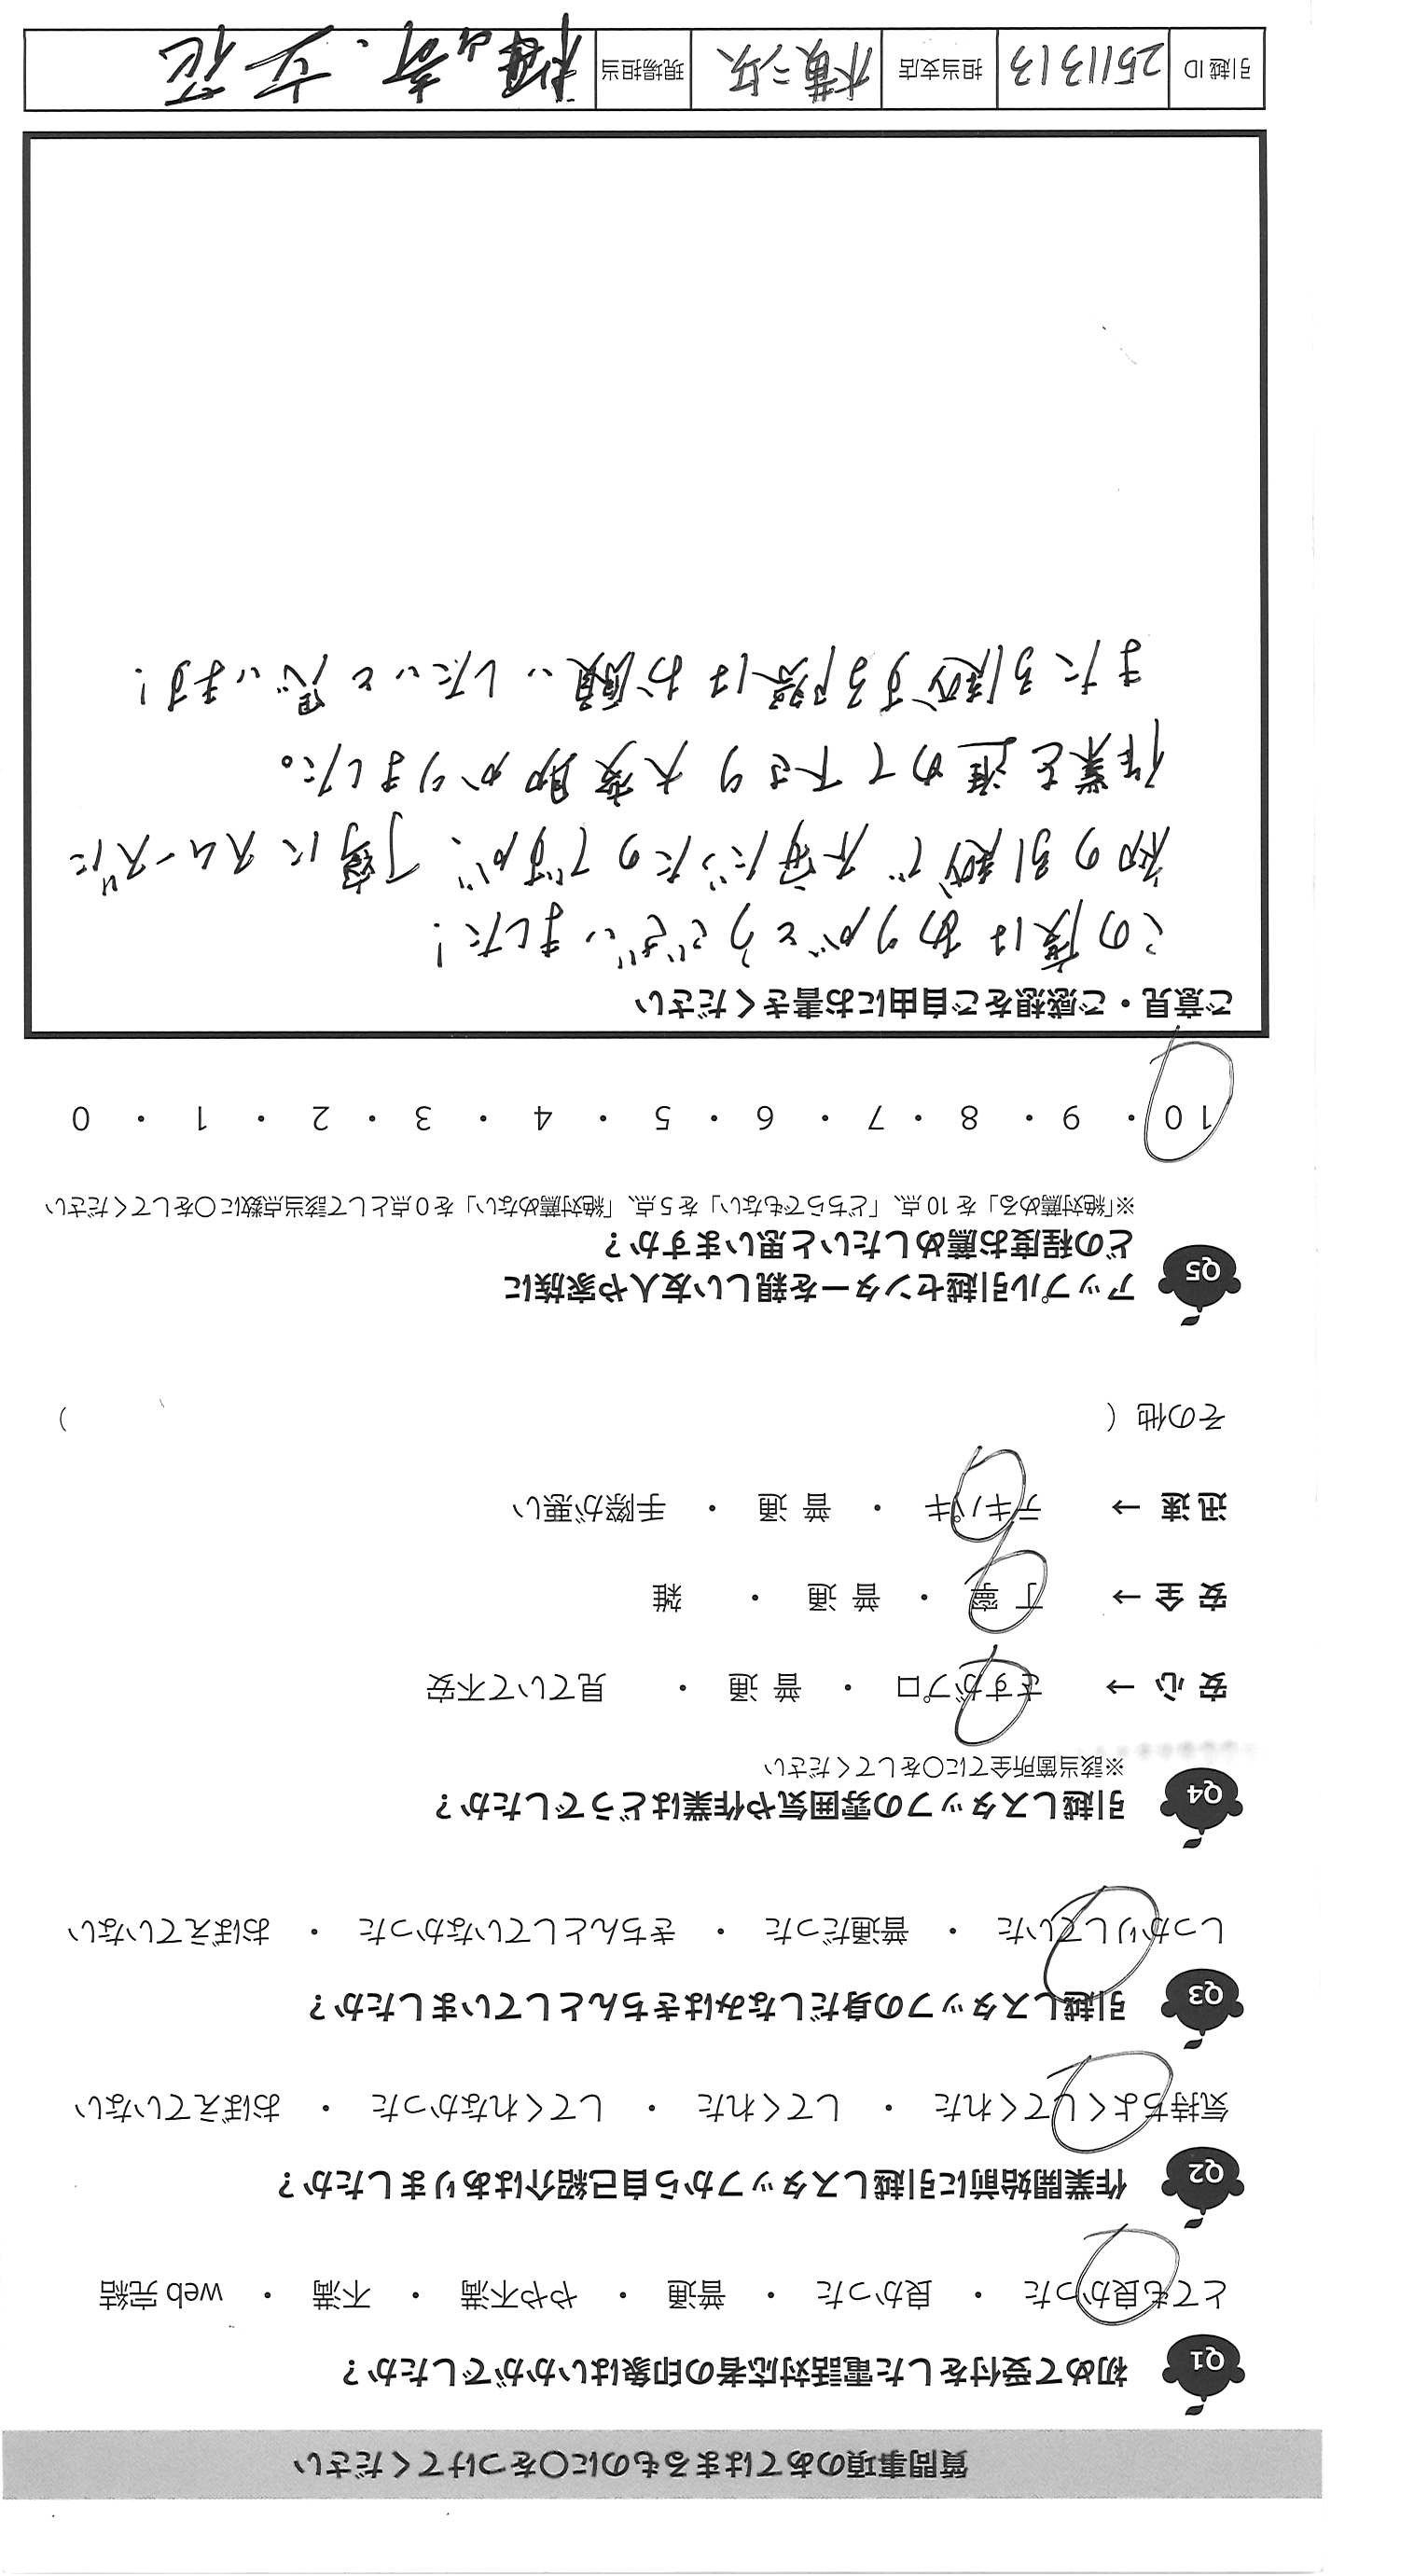 質問事項のあてはまるものに〇をつけてください
Q1 初めて受付をした電話対応者の印象はいかがでしたか？
とても良かった ・ 良かった ・ 普通 ・ やや不満 ・ 不満 ・ web 完結
Q2 作業開始前に引越しスタッフから自己紹介はありましたか？
気持ちよくしてくれた ・ してくれた ・ してくれなかった ・ おぼえていない
Q3 引越しスタッフの身だしなみはきちんとしていましたか？
しっかりしていた ・ 普通だった ・ きちんとしていなかった ・ おぼえていない
Q4 引越しスタッフの雰囲気や作業はどうでしたか？
※該当箇所全てに〇をしてください
安 心 → さすがプロ ・ 普 通 ・ 見ていて不安
安 全 → 丁 寧 ・ 普 通 ・ 雑
迅 速 → テキパキ ・ 普 通 ・ 手際が悪い
その他（ ）
Q5 アップル引越センターを親しい友人や家族に
どの程度お薦めしたいと思いますか？
※「絶対薦める」を 10 点、「どちらでもない」を 5 点、「絶対薦めない」を 0 点として該当点数に〇をしてください
10 ・ 9 ・ 8 ・ 7 ・ 6 ・ 5 ・ 4 ・ 3 ・ 2 ・ 1 ・ 0
ご意見・ご感想をご自由にお書きください
この度はありがとうございました！
初の引越で不安だったのですが、丁寧にスムーズに
作業を進めて下さり大変助かりました。
また引越する際はお願いしたいと思います！
引越 ID 2511313 担当支店 横浜 現場担当